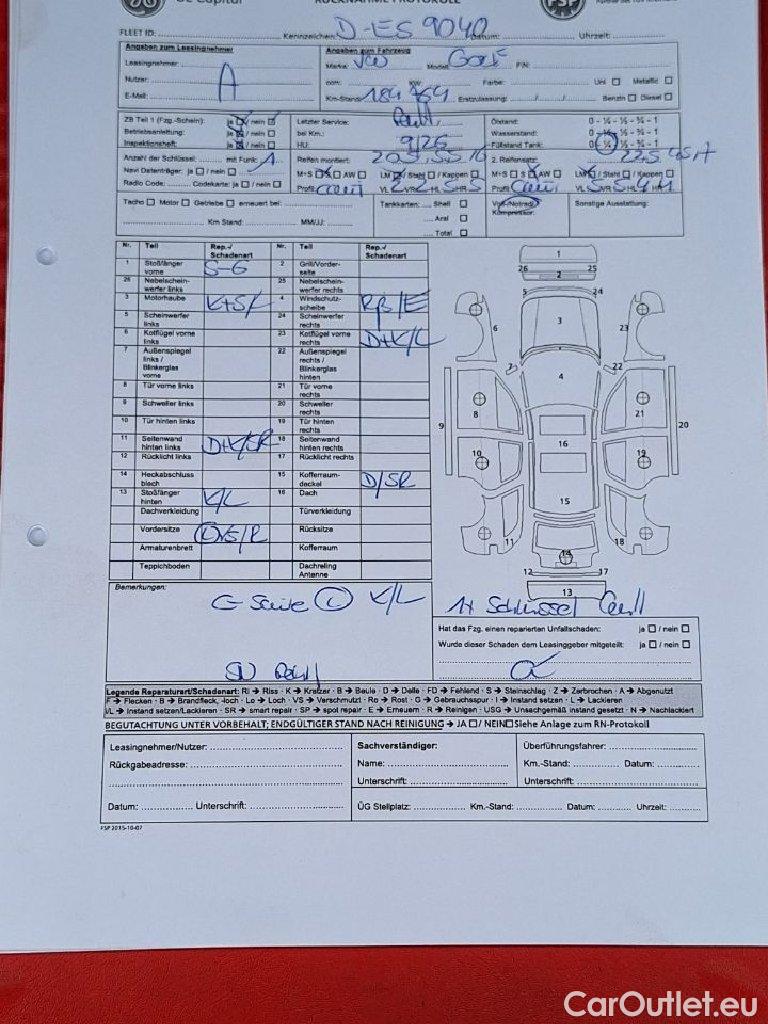 GE Capital RÜCKNAHME-PROTOKOLL FSP
FLEET ID: Kennzeichen: D-ES 9040 Datum: Uhrzeit:
Angaben zum Leasingnehmer
Leasingnehmer:
Nutzer:
E-Mail:
A
Angaben zum Fahrzeug
Marke: VW Modell: Golf FIN:
ccm: KW: Farbe: Uni Metallic
Km-Stand: 184 Erstzulassung: / / Benzin Diesel
ZB Teil 1 (Fzg.-Schein): ja / nein
Betriebsanleitung: ja / nein
Inspektionsheft: ja / nein
Letzter Service:
bei Km.:
HU: 9/26
Ölstand: 0 - ¼ - ½ - ¾ - 1
Wasserstand: 0 - ¼ - ½ - ¾ - 1
Füllstand Tank: 0 - ¼ - ½ - ¾ - 1
Anzahl der Schlüssel: mit Funk: 1
Navi Datenträger: ja / nein
Radio Code: Codekarte: ja / nein
Reifen montiert: 205.55.16
M+S S AW LM / Stahl / Kappen
Profil VL VR HL HR
2. Reifensatz: 225.45.17
M+S S AW LM / Stahl / Kappen
Profil VL VR HL HR
Tacho Motor Getriebe erneuert bei:
Km Stand: MM/JJ:
Tankkarten: Shell
Aral
Total
Kompressor:
Sonstige Ausstattung:
Nr. Teil Rep.-/ Schadenart Nr. Teil Rep.-/ Schadenart
1 Stoßfänger vorne S-G 2 Grill/Vorder-seite
26 Nebelschein-werfer links 25 Nebelschein-werfer rechts
3 Motorhaube K+S/L 4 Windschutz-scheibe
5 Scheinwerfer links 24 Scheinwerfer rechts
6 Kotflügel vorne links 23 Kotflügel vorne rechts D+K/L
7 Außenspiegel links / Blinkerglas vorne 22 Außenspiegel rechts / Blinkerglas hinten
8 Tür vorne links 21 Tür vorne rechts
9 Schweller links 20 Schweller rechts
10 Tür hinten links 19 Tür hinten rechts
11 Seitenwand hinten links D+K/SR 18 Seitenwand hinten rechts
12 Rücklicht links 17 Rücklicht rechts
14 Heckabschluss blech 15 Kofferraum-deckel D/SR
13 Stoßfänger hinten K/L 16 Dach
Dachverkleidung Türverkleidung
Vordersitze Rücksitze
Armaturenbrett Kofferraum
Teppichboden Dachreling Antenne
1
26 2 25
5 24
6 3 23
7 22
4
8 21
9 20
16
10 19
15
11 18
14
12 17
13
Bemerkungen:
K/L
1x Schlüssel
Hat das Fzg. einen reparierten Unfallschaden: ja / nein
Wurde dieser Schaden dem Leasinggeber mitgeteilt: ja / nein
Legende Reparaturart/Schadenart: RI → Riss · K → Kratzer · B → Beule · D → Delle · FD → Fehlend · S → Steinschlag · Z → Zerbrochen · A → Abgenutzt
F → Flecken · B → Brandfleck, -loch · Lo → Loch · VS → Verschmutzt · Ro → Rost · G → Gebrauchsspur · I → Instand setzen · L → Lackieren
I/L → Instand setzen/Lackieren · SR → smart repair · SP → spot repair · E → Erneuern · R → Reinigen · USG → Unsachgemäß instand gesetzt · N → Nachlackiert
BEGUTACHTUNG UNTER VORBEHALT; ENDGÜLTIGER STAND NACH REINIGUNG → JA / NEIN Siehe Anlage zum RN-Protokoll
Leasingnehmer/Nutzer:
Rückgabeadresse:
Datum: Unterschrift:
Sachverständiger:
Name:
Unterschrift:
Überführungsfahrer:
Km.-Stand: Datum:
Unterschrift:
ÜG Stellplatz: Km.-Stand: Datum: Uhrzeit:
FSP 2015-10-07
CarOutlet.eu